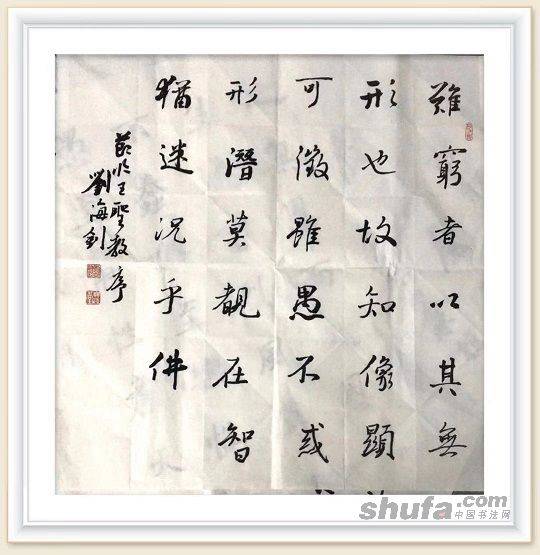 難窮者以其無
形也故知像顯
可徵雖愚不惑
形潛莫覩在智
猶迷況乎佛
節臨王聖教序
劉海釗
shufa.com
中国书法网